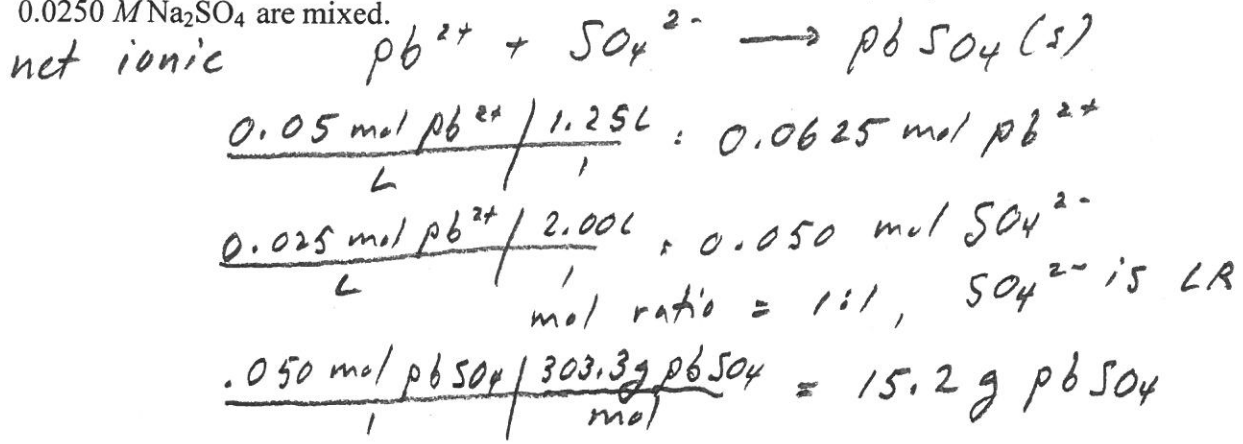 0.0250 M Na₂SO₄ are mixed.
net ionic Pb²⁺ + SO₄²⁻ → PbSO₄(s)
0.05 mol Pb²⁺ | 1.25L : 0.0625 mol Pb²⁺
L | 1
0.025 mol Pb²⁺ | 2.00L = 0.050 mol SO₄²⁻
L | 1
mol ratio = 1:1, SO₄²⁻ is LR
.050 mol PbSO₄ | 303.3g PbSO₄ = 15.2 g PbSO₄
1 | mol